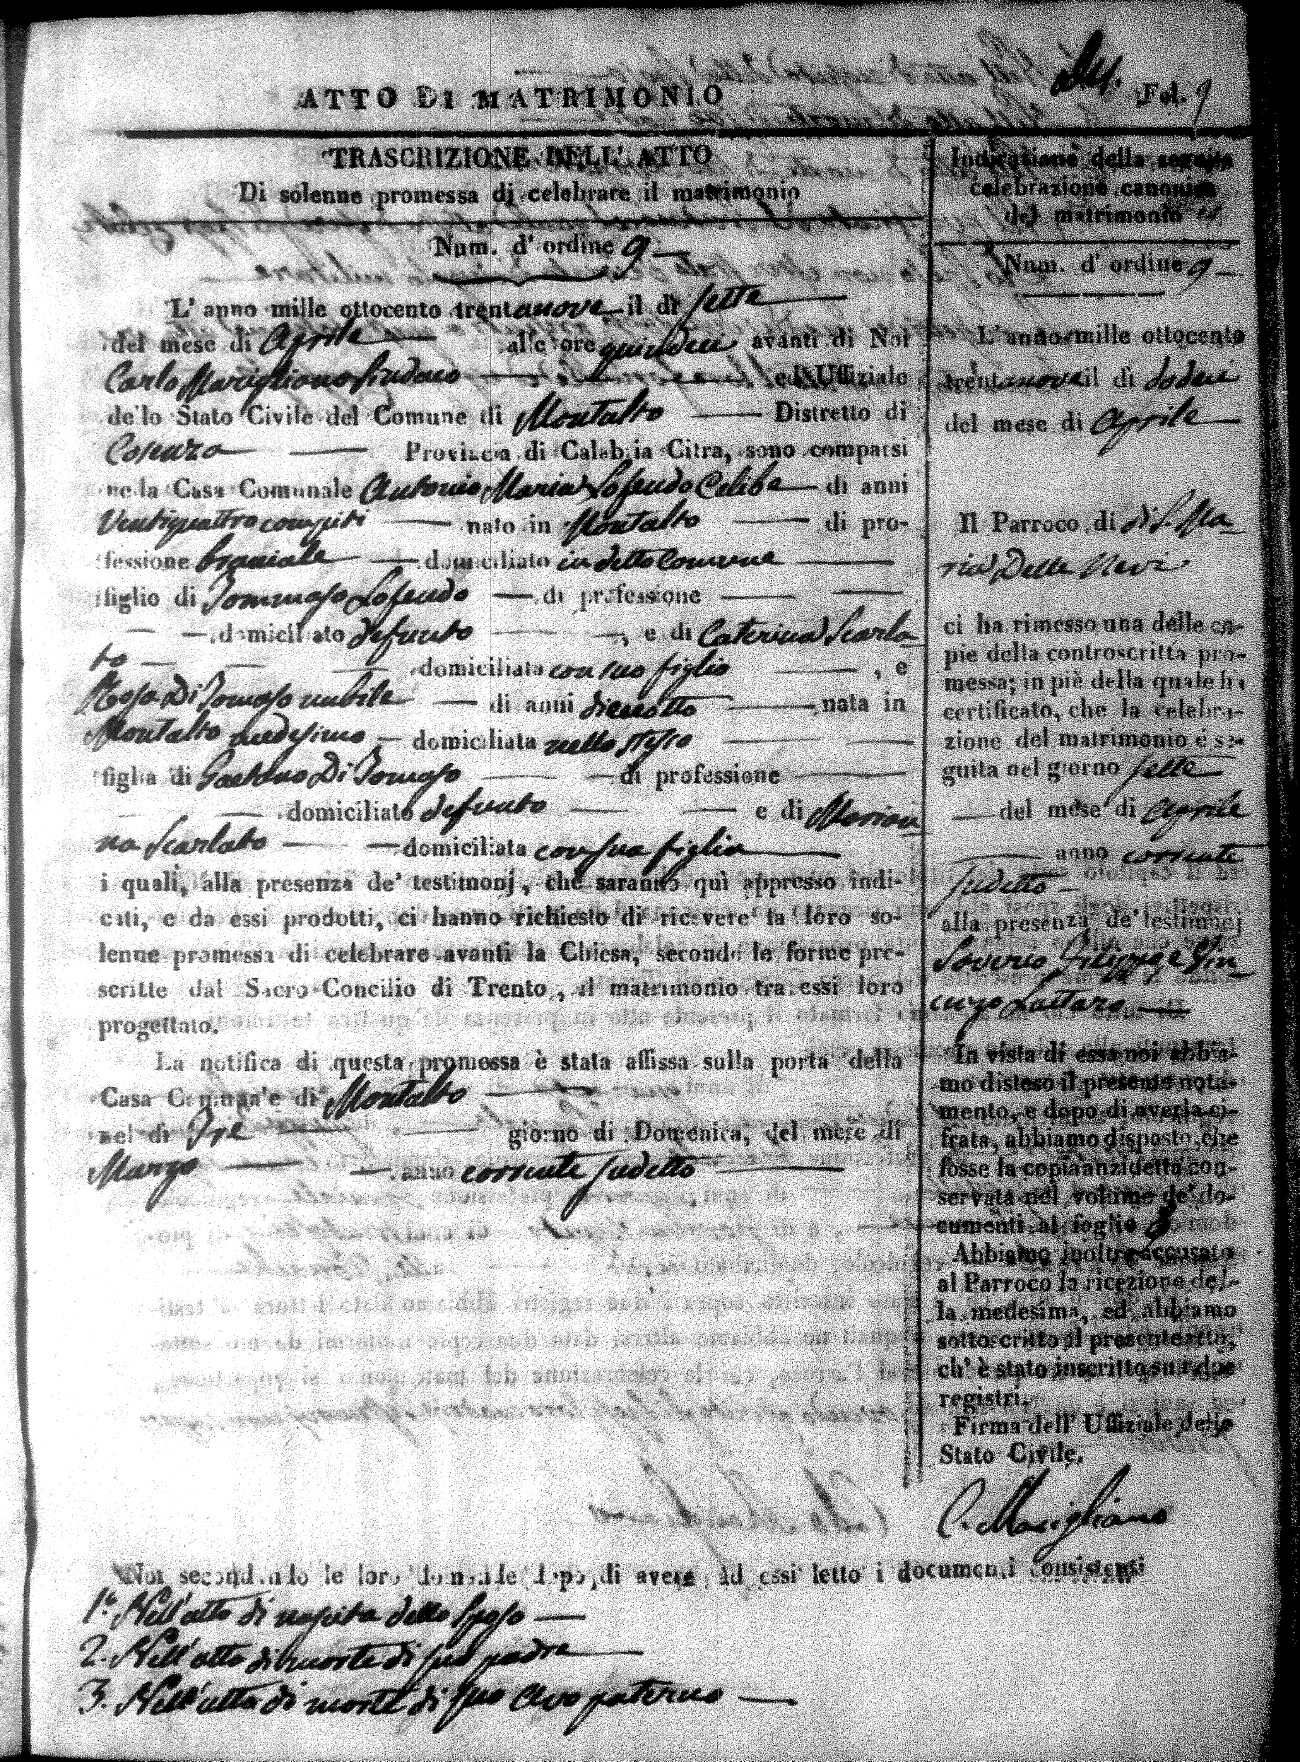 ATTO DI MATRIMONIO
Fol. 9
TRASCRIZIONE DELL' ATTO
Di solenne promessa di celebrare il matrimonio
Num. d' ordine 9
L' anno mille ottocento trentanove il dì sette
del mese di Aprile alle ore quindici avanti di Noi
Carlo Marigliano Sindaco ed Uffiziale
dello Stato Civile del Comune di Montalto Distretto di
Cosenza Provincia di Calabria Citra, sono comparsi
nella Casa Comunale Antonio Maria Celibe di anni
Ventiquattro compiti nato in Montalto di pro-
fessione braciale domiciliato in detto Comune
figlio di Tommaso di professione
domiciliato defunto, e di Caterina Scarla
to domiciliata con suo figlio, e
Rosa Di Tomaso nubile di anni dieciotto nata in
Montalto medesimo domiciliata nello stesso
figlia di Gaetano Di Tomaso di professione
domiciliato defunto e di Marian
na Scarlato domiciliata con sua figlia
i quali, alla presenza de' testimonj, che saranno quì appresso indi-
cati, e da essi prodotti, ci hanno richiesto di ricevere la loro so-
lenne promessa di celebrare avanti la Chiesa, secondo le forme pre-
scritte dal Sacro Concilio di Trento, il matrimonio tra essi loro
progettato.
La notifica di questa promessa è stata affissa sulla porta della
Casa Comunale di Montalto
nel dì Tre giorno di Domenica, del mese di
Marzo anno corrente sudetto
Indicazione della seguita
celebrazione canonica
del matrimonio
Num. d' ordine 9
L' anno mille ottocento
trentanove il dì dodeci
del mese di Aprile
Il Parroco di di S. Ma
ria Delle Neve
ci ha rimesso una delle co-
pie della controscritta pro-
messa; in piè della quale ha
certificato, che la celebra-
zione del matrimonio è se-
guita nel giorno sette
del mese di Aprile
anno corrente
sudetto
alla presenza de' testimonj
e Vin
cenzo Lattaro
In vista di essa noi abbia-
mo disteso il presente nota-
mento, e dopo di averla ci-
frata, abbiamo disposto, che
fosse la copia anzidetta con-
servata nel volume de' do-
cumenti al foglio
Abbiamo inoltre accusato
al Parroco la ricezione del-
la medesima, ed abbiamo
sottoscritto il presente atto,
ch' è stato inscritto su i due
registri.
Firma dell' Uffiziale dello
Stato Civile.
C. Marigliano
Noi secondando le loro domande dopo di avere ad essi letto i documenti consistenti
1.° Nell'atto di nascita dello Sposo
2. Nell'atto di morte di suo padre
3. Nell'atto di morte di suo avo paterno